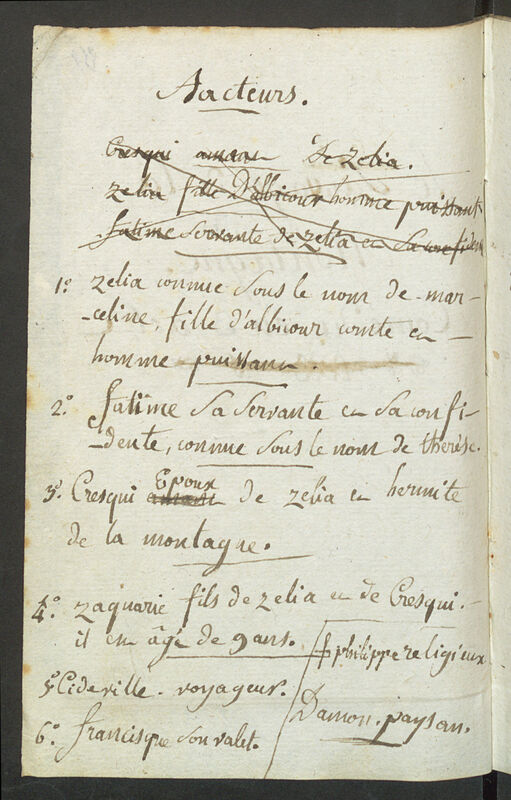 Aacteurs.
Cresqui amant de Zelia.
Zelia fille D'albicour homme puissant
fatime Servante de Zelia et Sa confidente
1º Zelia connue Sous le nom de mar-
-celine, fille d'albicour comte et
homme puissant.
2º fatime Sa Servante et Sa confi-
-dente, connue Sous le nom de therese.
3º Cresqui amant Epoux de Zelia et hermite
de la montagne.
4º Zaquarie fils de Zelia et de Cresqui.
il est âgé de 9 ans.
f philippe religieux
5º Cideville. voyageur.
Damon. paysan.
6º francisque Son valet.